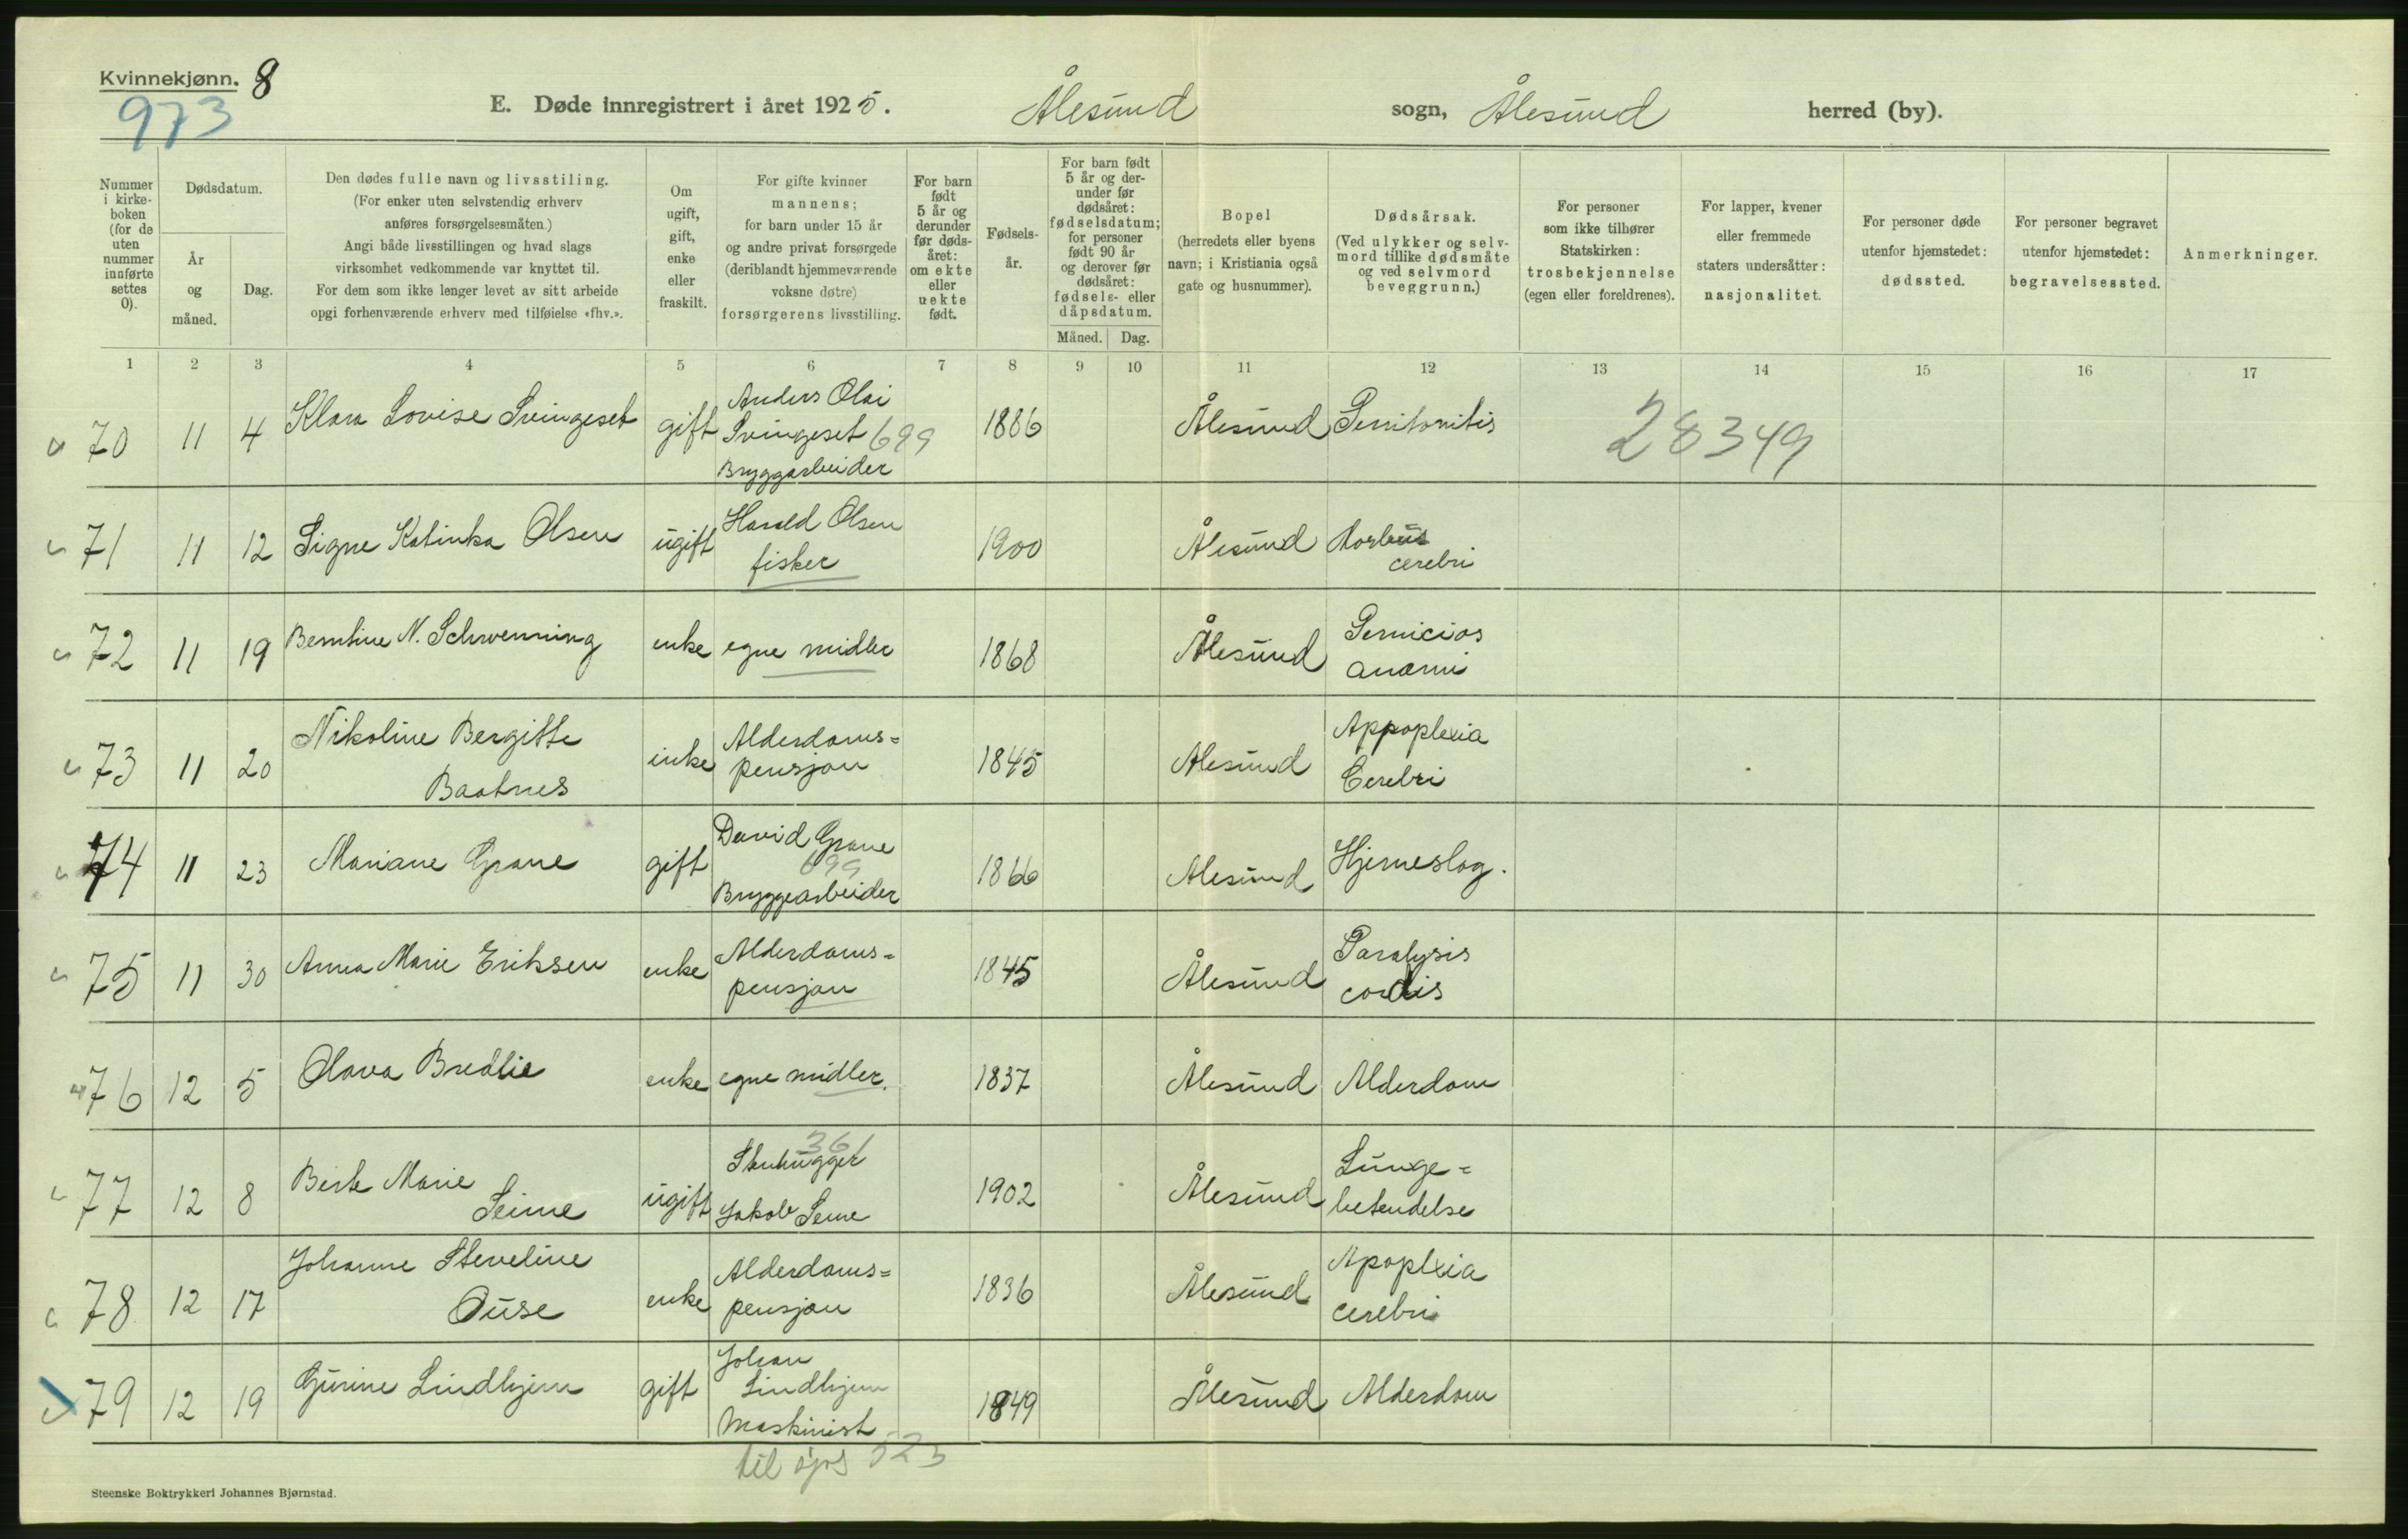 Kvinnekjønn. 8
973
E. Døde innregistrert i året 1925. Ålesund sogn, Ålesund herred (by).
Nummer i kirke- boken (for de uten nummer innførte settes 0).
Dødsdatum.
År og måned.
Dag.
Den dødes fulle navn og livsstiling.
(For enker uten selvstendig erhverv
anføres forsørgelsesmåten.)
Angi både livsstillingen og hvad slags
virksomhet vedkommende var knyttet til.
For dem som ikke lenger levet av sitt arbeide
opgi forhenværende erhverv med tilføielse «fhv.».
Om ugift, gift, enke eller fraskilt.
For gifte kvinner
mannens;
for barn under 15 år
og andre privat forsørgede
(deriblandt hjemmeværende
voksne døtre)
forsørgerens livsstilling.
For barn født 5 år og derunder før døds- året: om ekte eller uekte født.
Fødsels- år.
For barn født 5 år og der- under før dødsåret: fødselsdatum; for personer født 90 år og derover før dødsåret: fødsels- eller dåpsdatum.
Måned. Dag.
Bopel
(herredets eller byens
navn; i Kristiania også
gate og husnummer).
Dødsårsak.
(Ved ulykker og selv-
mord tillike dødsmåte
og ved selvmord
beveggrunn.)
For personer
som ikke tilhører
Statskirken:
trosbekjennelse
(egen eller foreldrenes).
For lapper, kvener
eller fremmede
staters undersåtter:
nasjonalitet.
For personer døde
utenfor hjemstedet:
dødssted.
For personer begravet
utenfor hjemstedet:
begravelsessted.
Anmerkninger.
1 2 3 4 5 6 7 8 9 10 11 12 13 14 15 16 17
70 11 4 Klara Lovise Svingeset gift Anders Olai Svingeset 699 Bryggarbeider 1886 Ålesund Peritonitis 28349
71 11 12 Signe Katinka Olsen ugift Harald Olsen fisker 1900 Ålesund Morbus cerebri
72 11 19 Berntine N. Schwenning enke egne midler 1868 Ålesund Pernicios anæmi
73 11 20 Nikoline Bergitte Baatnes enke Alderdoms= pensjon 1845 Alesund Appoplexia Cerebri
74 11 23 Mariane Grane gift David Grane 699 Bryggearbeider 1866 Alesund Hjerneslag.
75 11 30 Anna Marie Eriksen enke Alderdoms= pensjon 1845 Ålesund Paralysis cordis
76 12 5 Olava Bredlie enke egne midler. 1837 Ålesund Alderdom
77 12 8 Berte Marie Seime ugift 361 Stenhugger Jakob Seime 1902 Ålesund Lunge= betendelse
78 12 17 Johanne Steveline Ouse enke Alderdoms= pensjon 1836 Ålesund Apoplexia cerebri
79 12 19 Gurine Lindhjem gift Johan Lindhjem Maskinist 1849 Ålesund Alderdom
til sjøs 523
Steenske Boktrykkeri Johannes Bjørnstad.